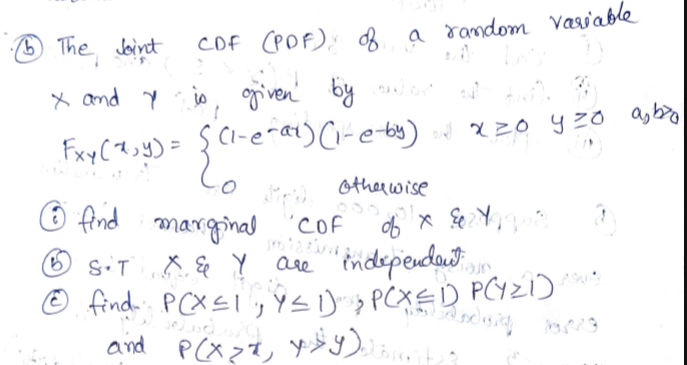 (b) The Joint CDF (PDF) of a random variable
X and Y is, given by
F_XY(x,y) = { (1-e^-ax)(1-e^-by) x≥0 y≥0 a,b>0
0 otherwise
(i) find marginal CDF of X & Y,
(b) S.T X & Y are independent.
(c) find P(X≤1, Y≤1), P(X≤1) P(Y≥1)
and P(X>x, Y>y)